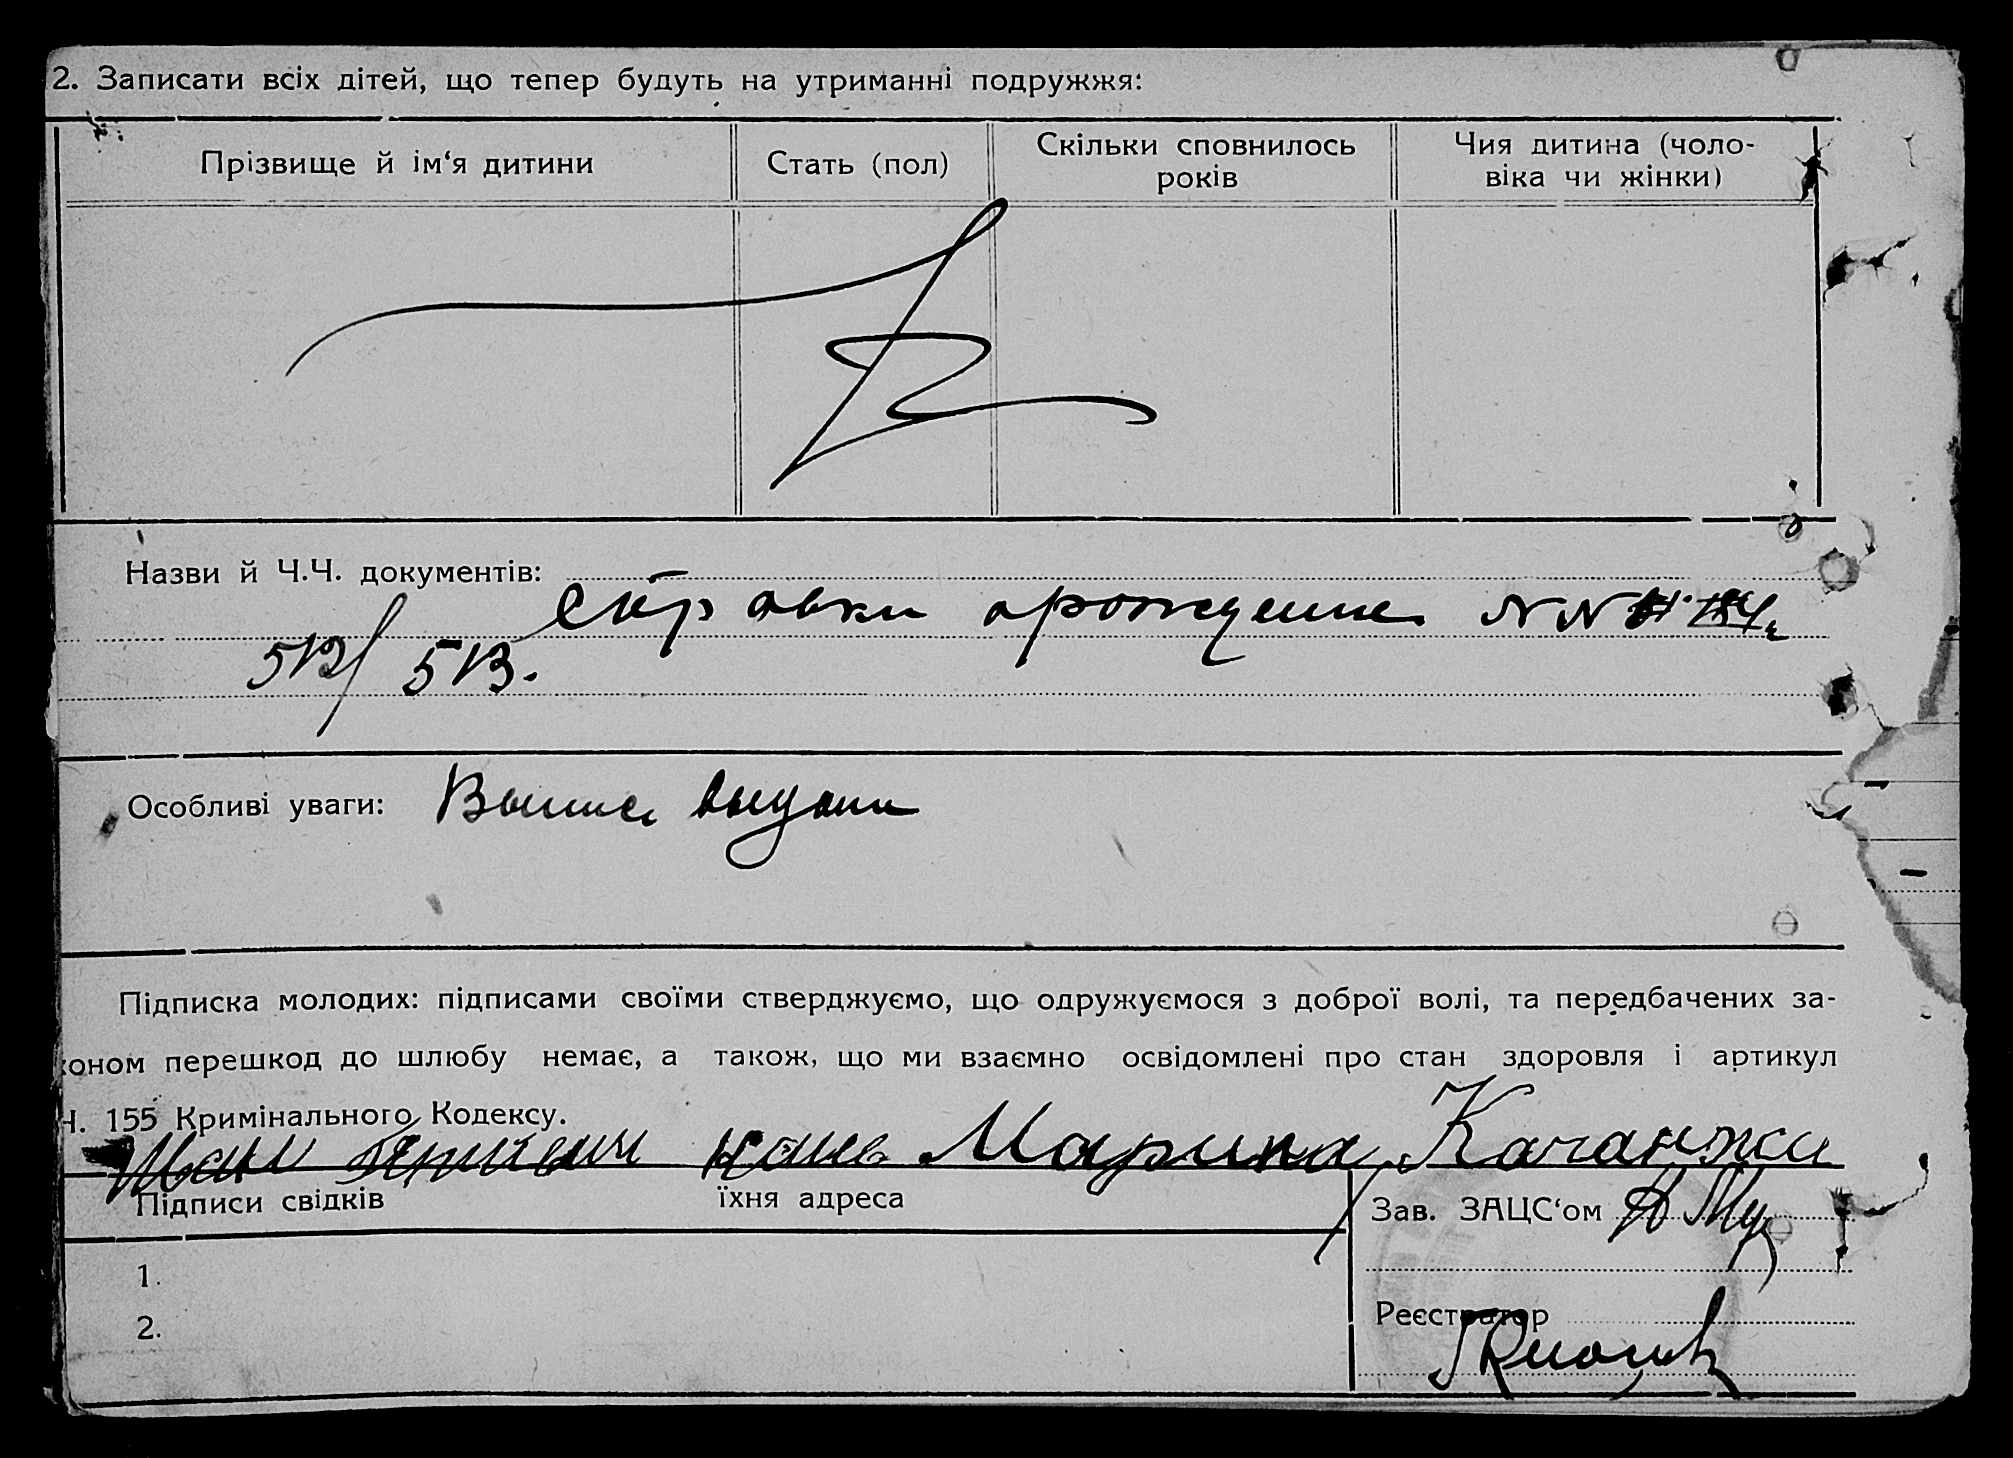 2. Записати всіх дітей, що тепер будуть на утриманні подружжя:
Прізвище й ім‘я дитини
Стать (пол)
Скільки сповнилось
років
Чия дитина (чоло-
віка чи жінки)
Назви й Ч.Ч. документів:
справки орождение NN
512/ 513.
Особливі уваги: Выпись выдани
Підписка молодих: підписами своїми стверджуємо, що одружуємося з доброї волі, та передбачених за-
коном перешкод до шлюбу немає, а також, що ми взаємно освідомлені про стан здоровля і артикул
Ч. 155 Кримінального Кодексу.
Марина Качанжи
Підписи свідків
їхня адреса
Зав. ЗАЦС‘ом
1.
Реєстратор
2.